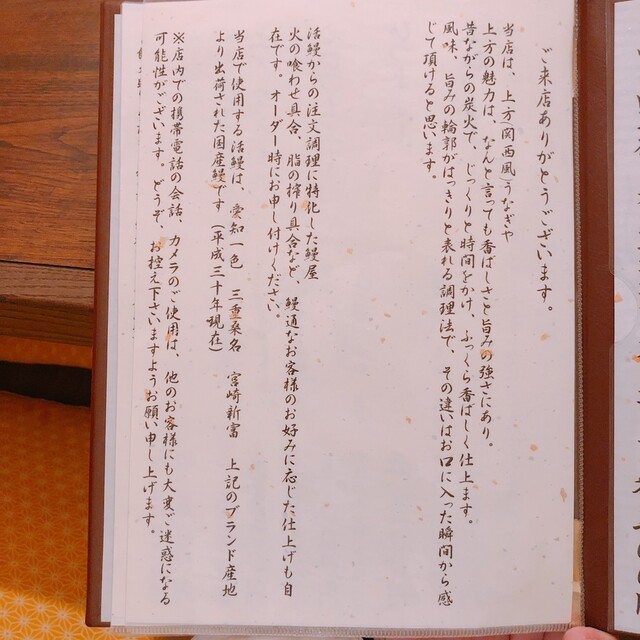 ご来店ありがとうございます。
当店は、上方関西風うなぎや
上方の魅力は、なんと言っても香ばしさと旨みの強さにあり。
昔ながらの炭火で、じっくりと時間をかけ、ふっくら香ばしく仕上ます。
風味、旨みの輪郭がはっきりと表れる調理法で、その違いはお口に入った瞬間から感
じて頂けると思います。
活鰻からの注文調理に特化した鰻屋
火の喰わせ具合、脂の搾り具合など、鰻通なお客様のお好みに応じた仕上げも自
在です。オーダー時にお申し付けください。
当店で使用する活鰻は、愛知一色　三重桑名　宮崎新富　上記のブランド産地
より出荷された国産鰻です（平成三十年現在）
※店内での携帯電話の会話、カメラのご使用は、他のお客様にも大変ご迷惑になる
可能性がございます。どうぞ、お控え下さいますようお願い申し上げます。